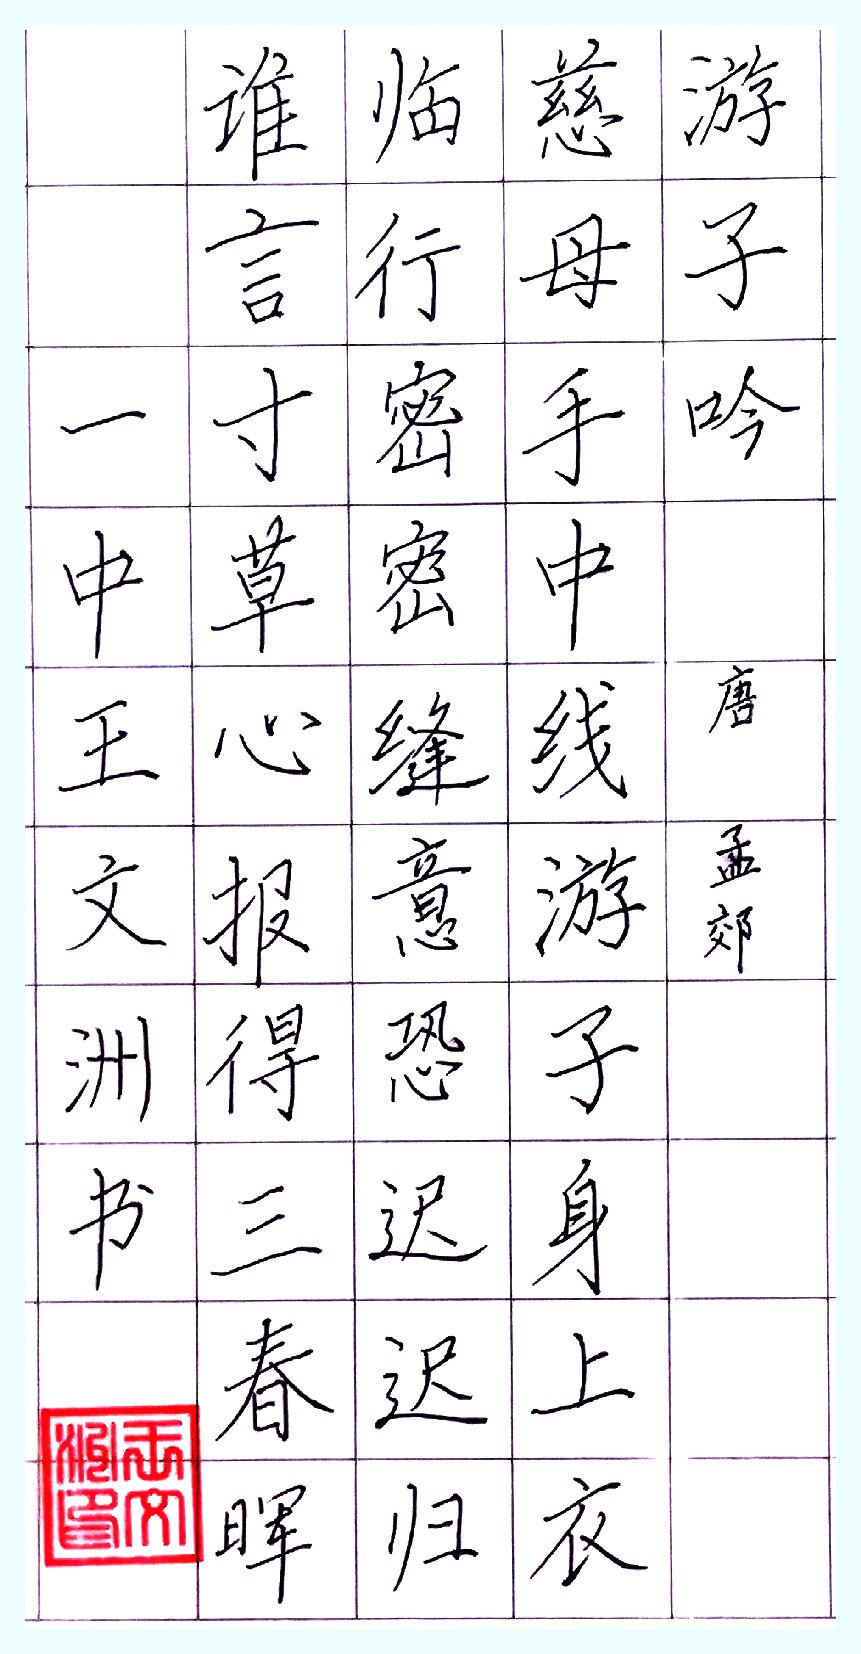 游子吟 唐 孟郊
慈母手中线游子身上衣
临行密密缝意恐迟迟归
谁言寸草心报得三春晖
一中王文洲书
王文洲印